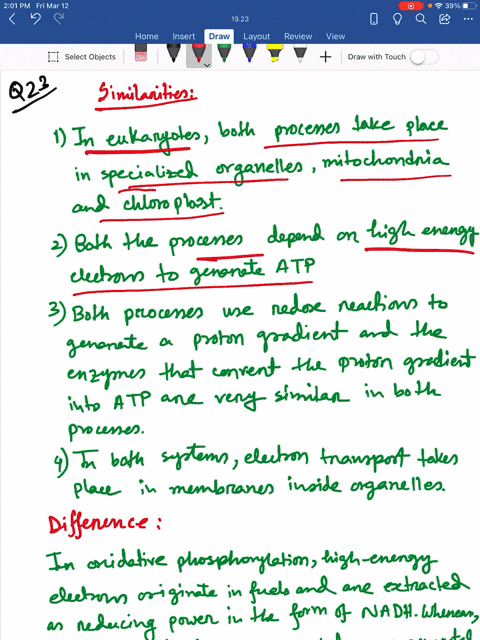 2:01 PM Fri Mar 12
39%
19.23
Home Insert Draw Layout Review View
Select Objects
Draw with Touch
Q23
Similarities:
1) In eukaryotes, both processes take place
in specialized organelles, mitochondria
and chloroplast.
2) Both the processes depend on high energy
electrons to generate ATP
3) Both processes use redox reactions to
generate a proton gradient and the
enzymes that convert the proton gradient
into ATP are very similar in both
processes.
4) In both systems, electron transport takes
place in membranes inside organelles.
Difference:
In oxidative phosphorylation, high-energy
electrons originate in fuels and are extracted
as reducing power in the form of NADH. Whereas,